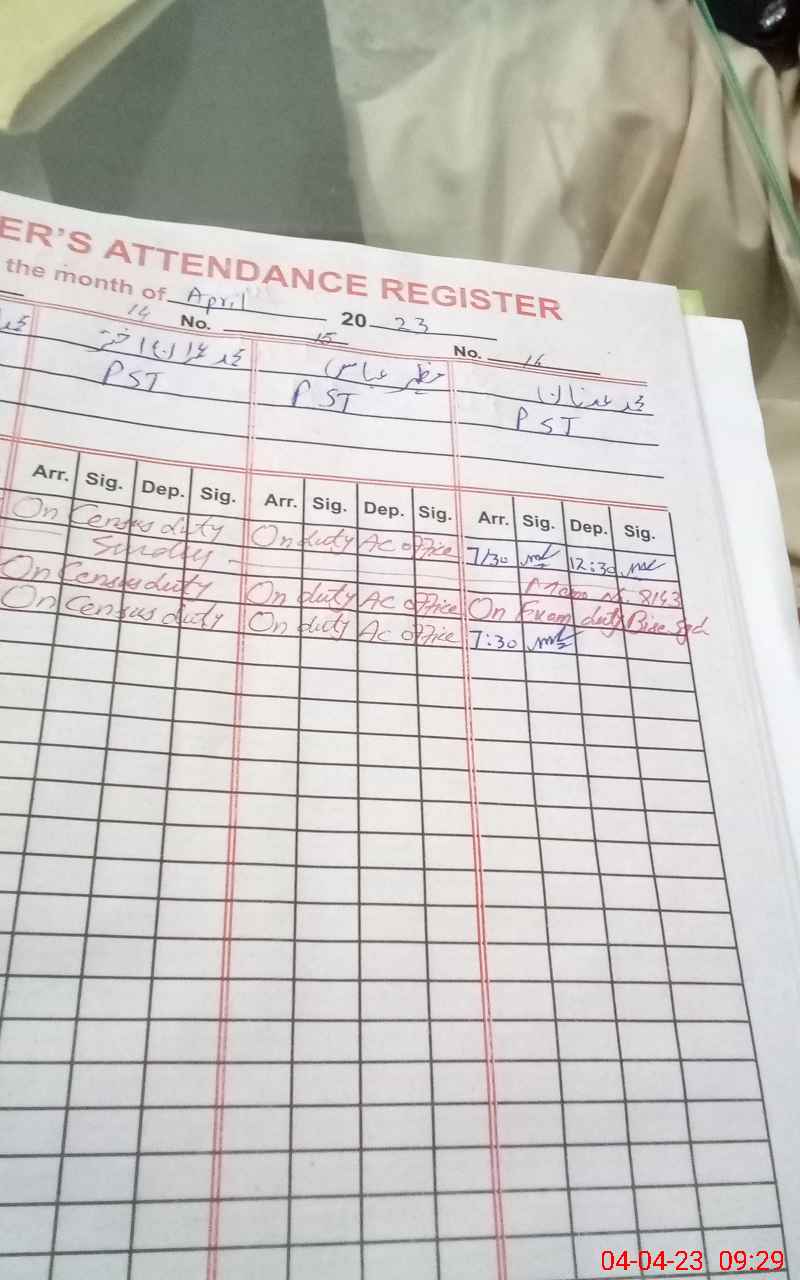 ER'S ATTENDANCE REGISTER
the month of April 2023
14 No. 15 No. 16
محمد عباس محمد عدنان
PST PST PST
Arr. Sig. Dep. Sig. Arr. Sig. Dep. Sig. Arr. Sig. Dep. Sig.
On Census duty On duty AC office 7/30 12:30
Sunday Memo No. 8143
On Census duty On duty AC office On Exam duty Bise Sgd
On Census duty On duty AC office 7:30
04-04-23 09:29